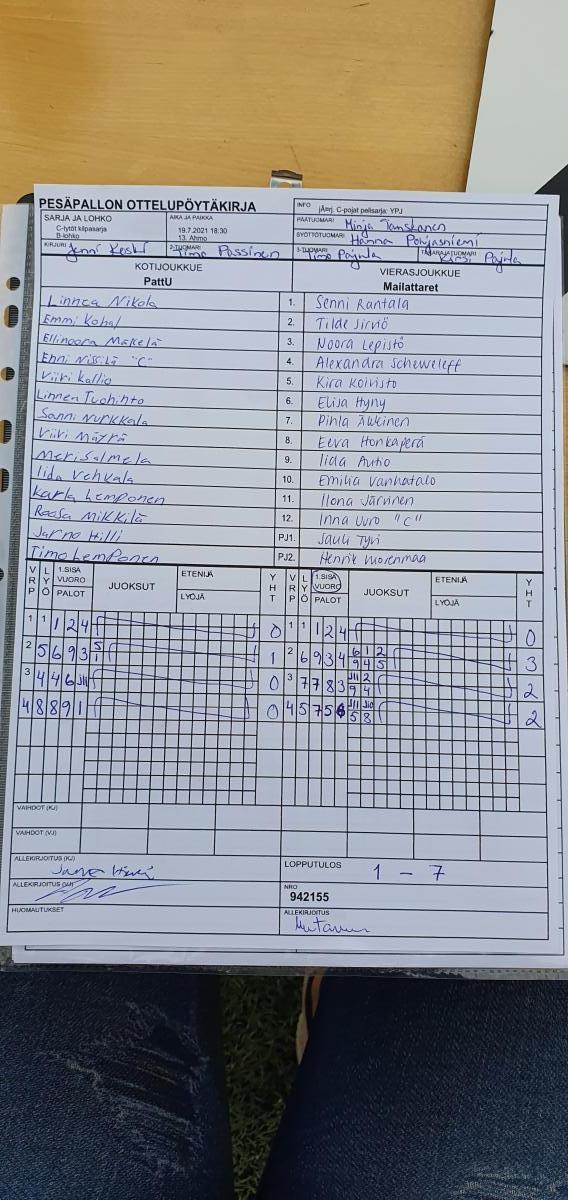 PESÄPALLON OTTELUPÖYTÄKIRJA
INFO jÄ=rj. C-pojat pelisarja: YPJ
SARJA JA LOHKO
C-tytöt kilpasarja
B-lohko
AIKA JA PAIKKA
19.7.2021 18:30
13. Ahmo
PÄÄTUOMARI Minja Tanskanen
SYÖTTÖTUOMARI Hanna Pohjasniemi
KIRJURI Jenni Keski
2-TUOMARI Timo Passinen
3-TUOMARI Timo Pajula
TAKARAJATUOMARI Kirsi Pajula
KOTIJOUKKUE
PattU
VIERASJOUKKUE
Mailattaret
Linnea Nikola 1. Senni Rantala
Emmi 2. Tilde Sirviö
Ellinoora Mäkelä 3. Noora Lepistö
Enni Nissilä "C" 4. Alexandra Scheweleff
Viivi Kallio 5. Kira Koivisto
Linnea Tuohinto 6. Elisa Hyny
Sanni Nurkkala 7. Pihla
Viivi Mäyrä 8. Eeva Honkaperä
Meri Salmela 9. Iida Autio
Iida Vehkala 10. Emilia Vanhatalo
Karla Lemponen 11. Ilona Järvinen
Roosa Mikkilä 12. Inna Uuro "C"
Jarno Hilli PJ1. Sauli Tyvi
Timo Lemponen PJ2. Henrik Vuorenmaa
VRP LYÖ 1.SISÄ VUORO PALOT JUOKSUT ETENIJÄ LYÖJÄ YHT VRP LYÖ 1.SISÄ VUORO PALOT JUOKSUT ETENIJÄ LYÖJÄ YHT
1 1 1 2 4 0 1 1 1 2 4 0
2 5 6 9 3 5/1 1 2 6 9 3 4 6/9 1/4 2/5 3
3 4 4 6 JIII 0 3 7 7 8 3 JII/9 2/4 2
4 8 8 9 1 0 4 5 7 5 6 JII/5 J10/8 2
VAIHDOT (KJ)
VAIHDOT (VJ)
ALLEKIRJOITUS (KJ)
LOPPUTULOS 1 - 7
ALLEKIRJOITUS (VJ)
NRO
942155
HUOMAUTUKSET
ALLEKIRJOITUS